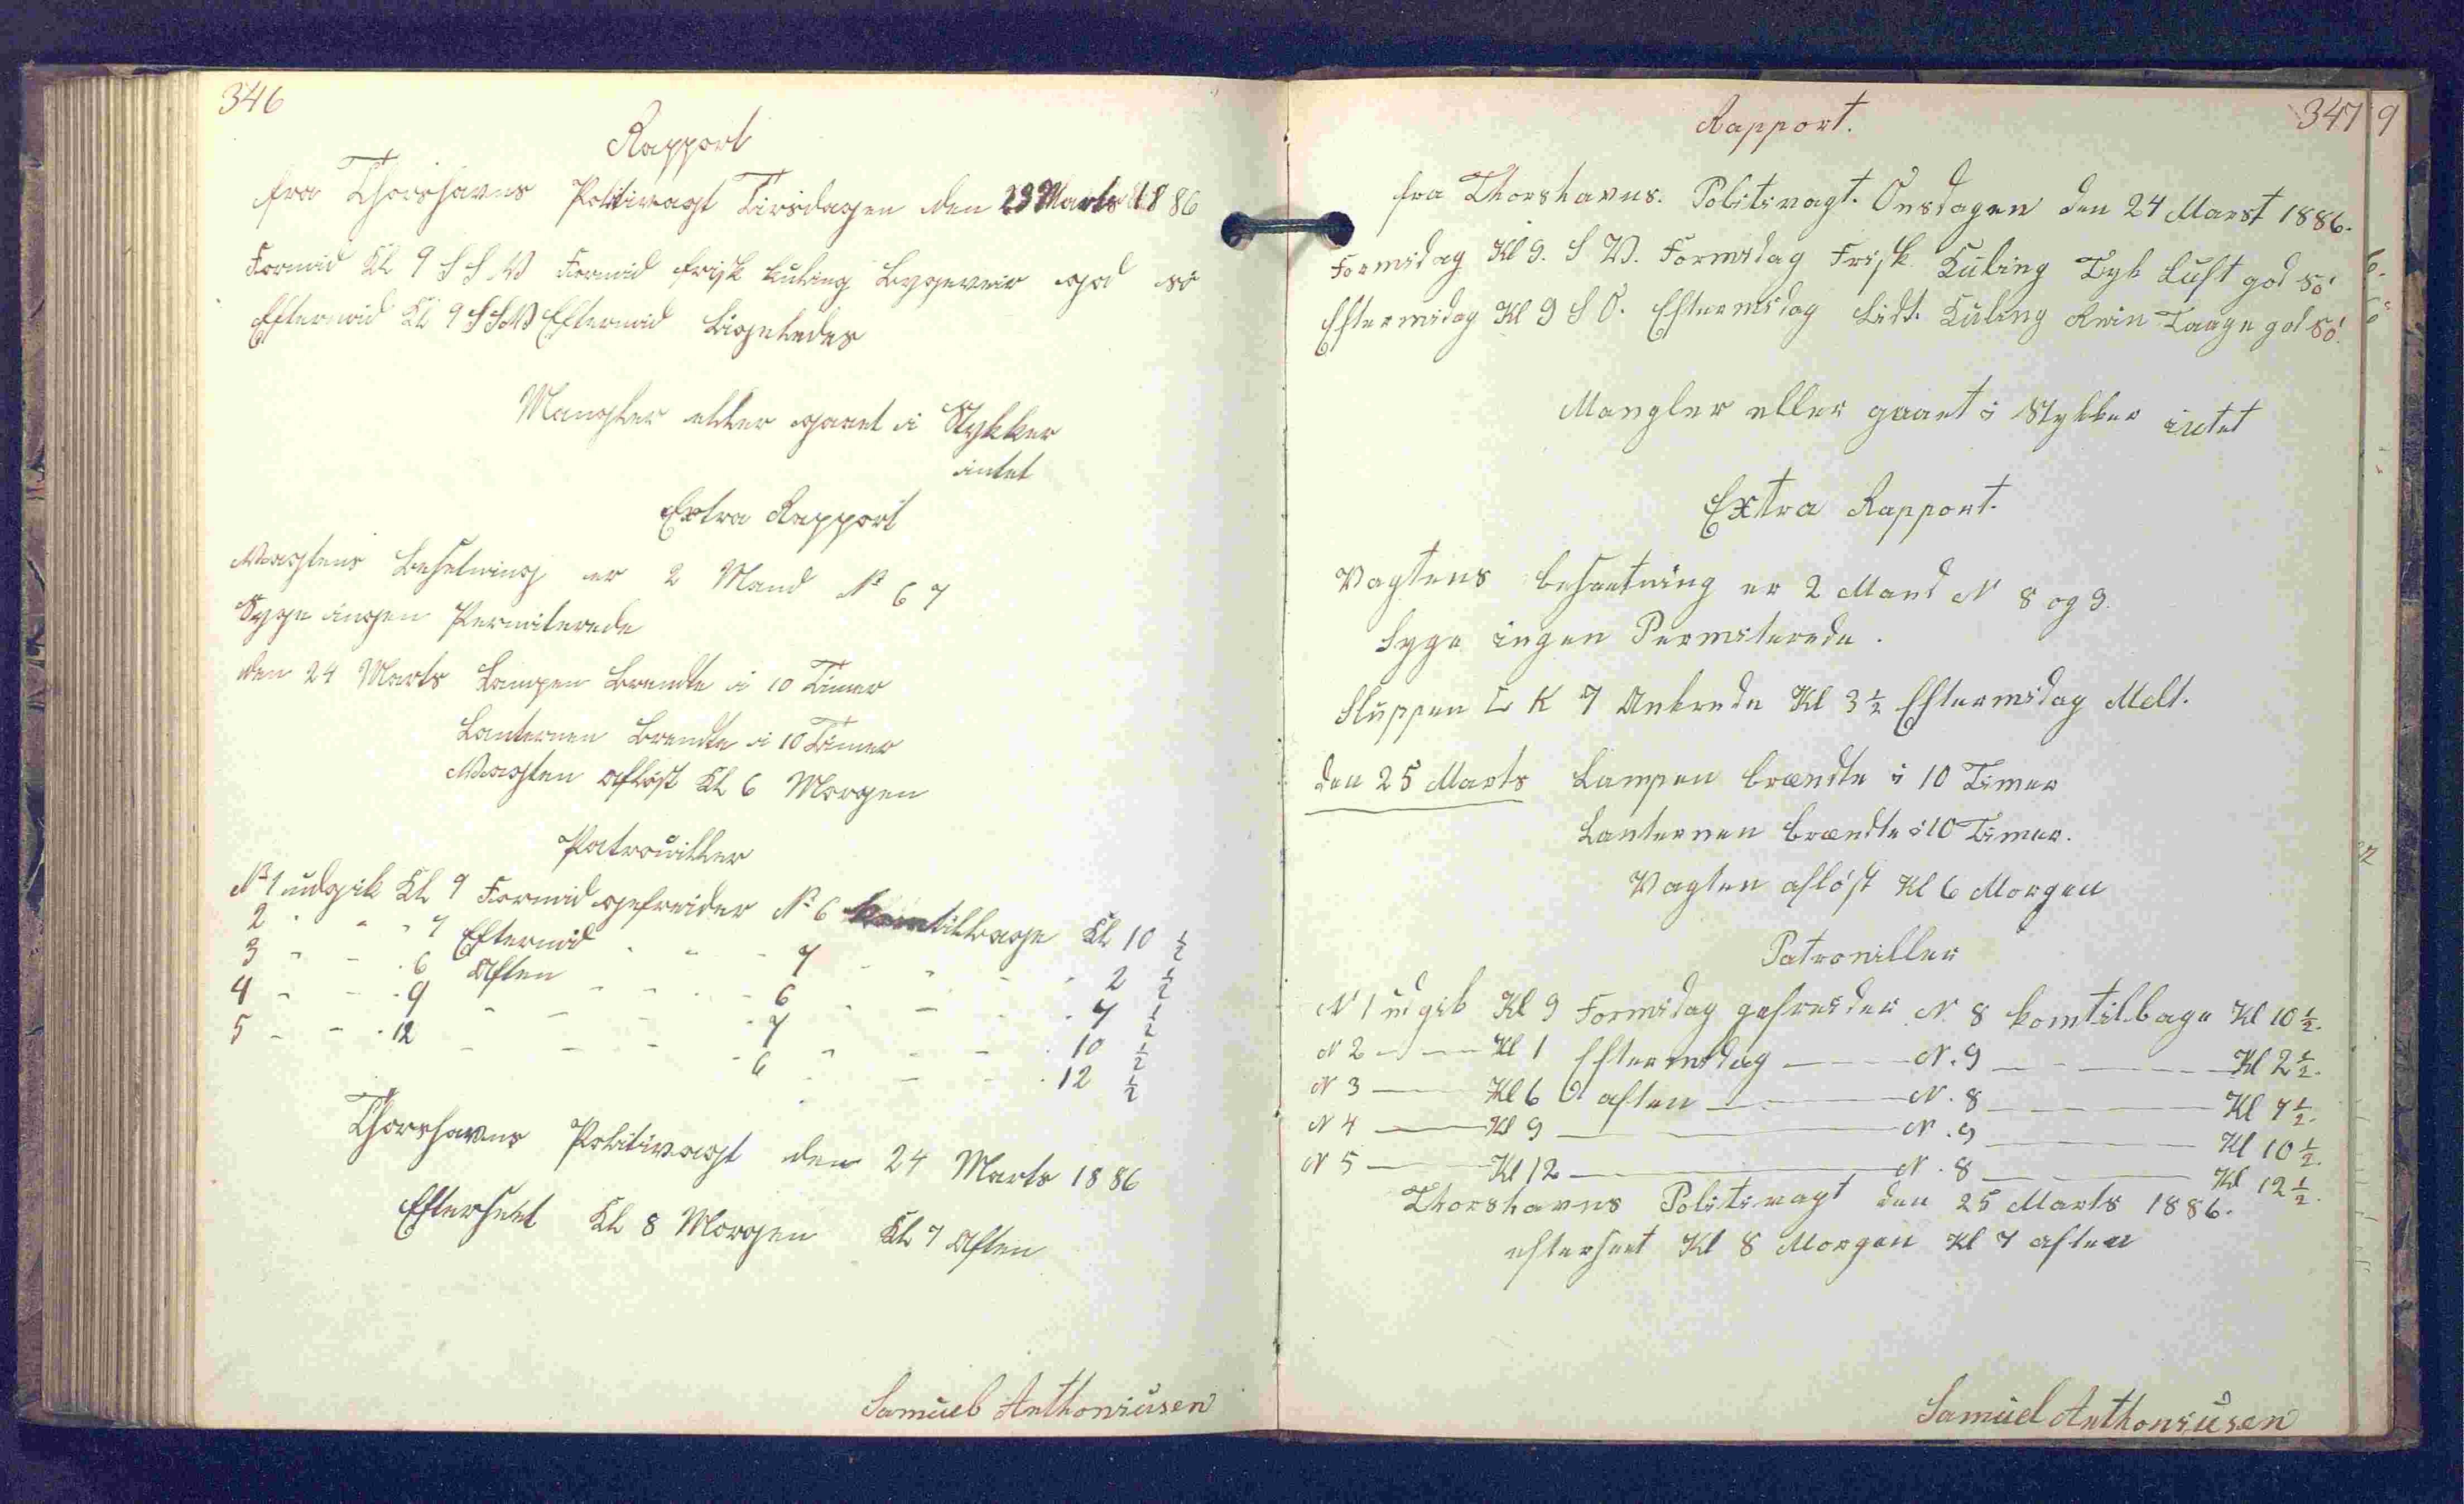 346
Rapport
fra Thorshavns Politivagt Tirsdagen den 23 Marts 1886
Formid Kl 9 S S V Formid frisk kuling Byggeveir god sö
Eftermid Kl 9 SSV Eftermid Ligeledes
Mangler eller gaaet i Stykker
intet
Extra Rapport
Vagtens Besetning er 2 Mand No 6 7
Syge ingen Permiterede
den 24 Marts Lampen Brendte i 10 Timer
Lanternen Brendte i 10 Timer
Vagten afløst Kl 6 Morgen
Patrouiller
No 1 udgik Kl 9 Formid gefreider No 6 kom tilbage Kl 10 ½
2 " " " 1 Eftermid " " " 7 " " " 2 ½
3 " " " 6 Aften " " " 6 " " " 7 ½
4 " " " 9 " " " " 7 " " " 10 ½
5 " " " 12 " " " " 6 " " " 12 ½
Thorshavns Politivagt den 24 Marts 1886
Efterseet Kl 8 Morgen Kl 7 Aften
Samuel Anthoniusen
347
Rapport.
fra Thorshavns. Politivagt. Onsdagen den 24 Marst 1886.
Formidag Kl 9. S V. Formidag Frisk Kuling Tyk Luft god Sö
Eftermidag Kl 9 S O. Eftermidag Lidt. Kuling Rein Taage god Sö.
Mangler eller gaaet i Stykker intet
Extra Rapport.
Vagtens besætning er 2 Mand N 8 og 9.
Syge ingen Permiterede.
Sluppen L K 7 Ankrede Kl 3½ Eftermidag Melt.
den 25 Marts Lampen brændte i 10 Timer
Lanternen brændte i 10 Timer.
Vagten afløst Kl 6 Morgen
Patroniller
N 1 udgik Kl 9 Formidag gefreider N. 8 kom tilbage Kl 10½.
N 2 — Kl 1 Eftermidag — N. 9 — Kl 2½.
N 3 — Kl 6 aften — N. 8 — Kl 7½.
N 4 — Kl 9 — N. 9 — Kl 10½.
N 5 — Kl 12 — N. 8 — Kl 12½.
Thorshavns Politivagt den 25 Marts 1886.
efterseet Kl 8 Morgen Kl 7 aften
Samuel Anthoniusen